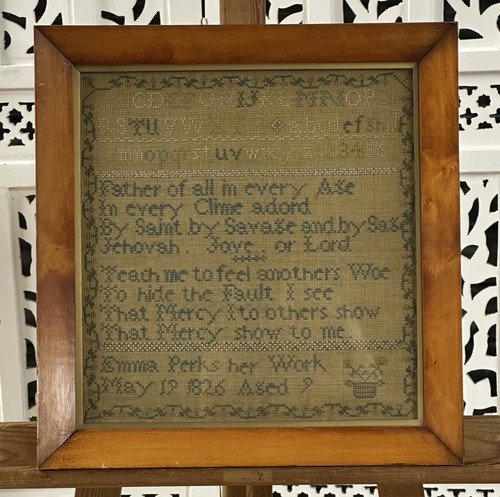 C D E F G H I J K L M N O P
Q S T U V W a b c d e f g h i
m n o p q r s t u v w x 3 4
Father of all in every Age
In every Clime adord
By Saint by Savage and by Sage
Jehovah . Jove . or Lord
Teach me to feel anothers Woe
To hide the Fault I see
That Mercy I to others show
That Mercy show to me
Emma Perks her Work
May 19 1826 Aged 9